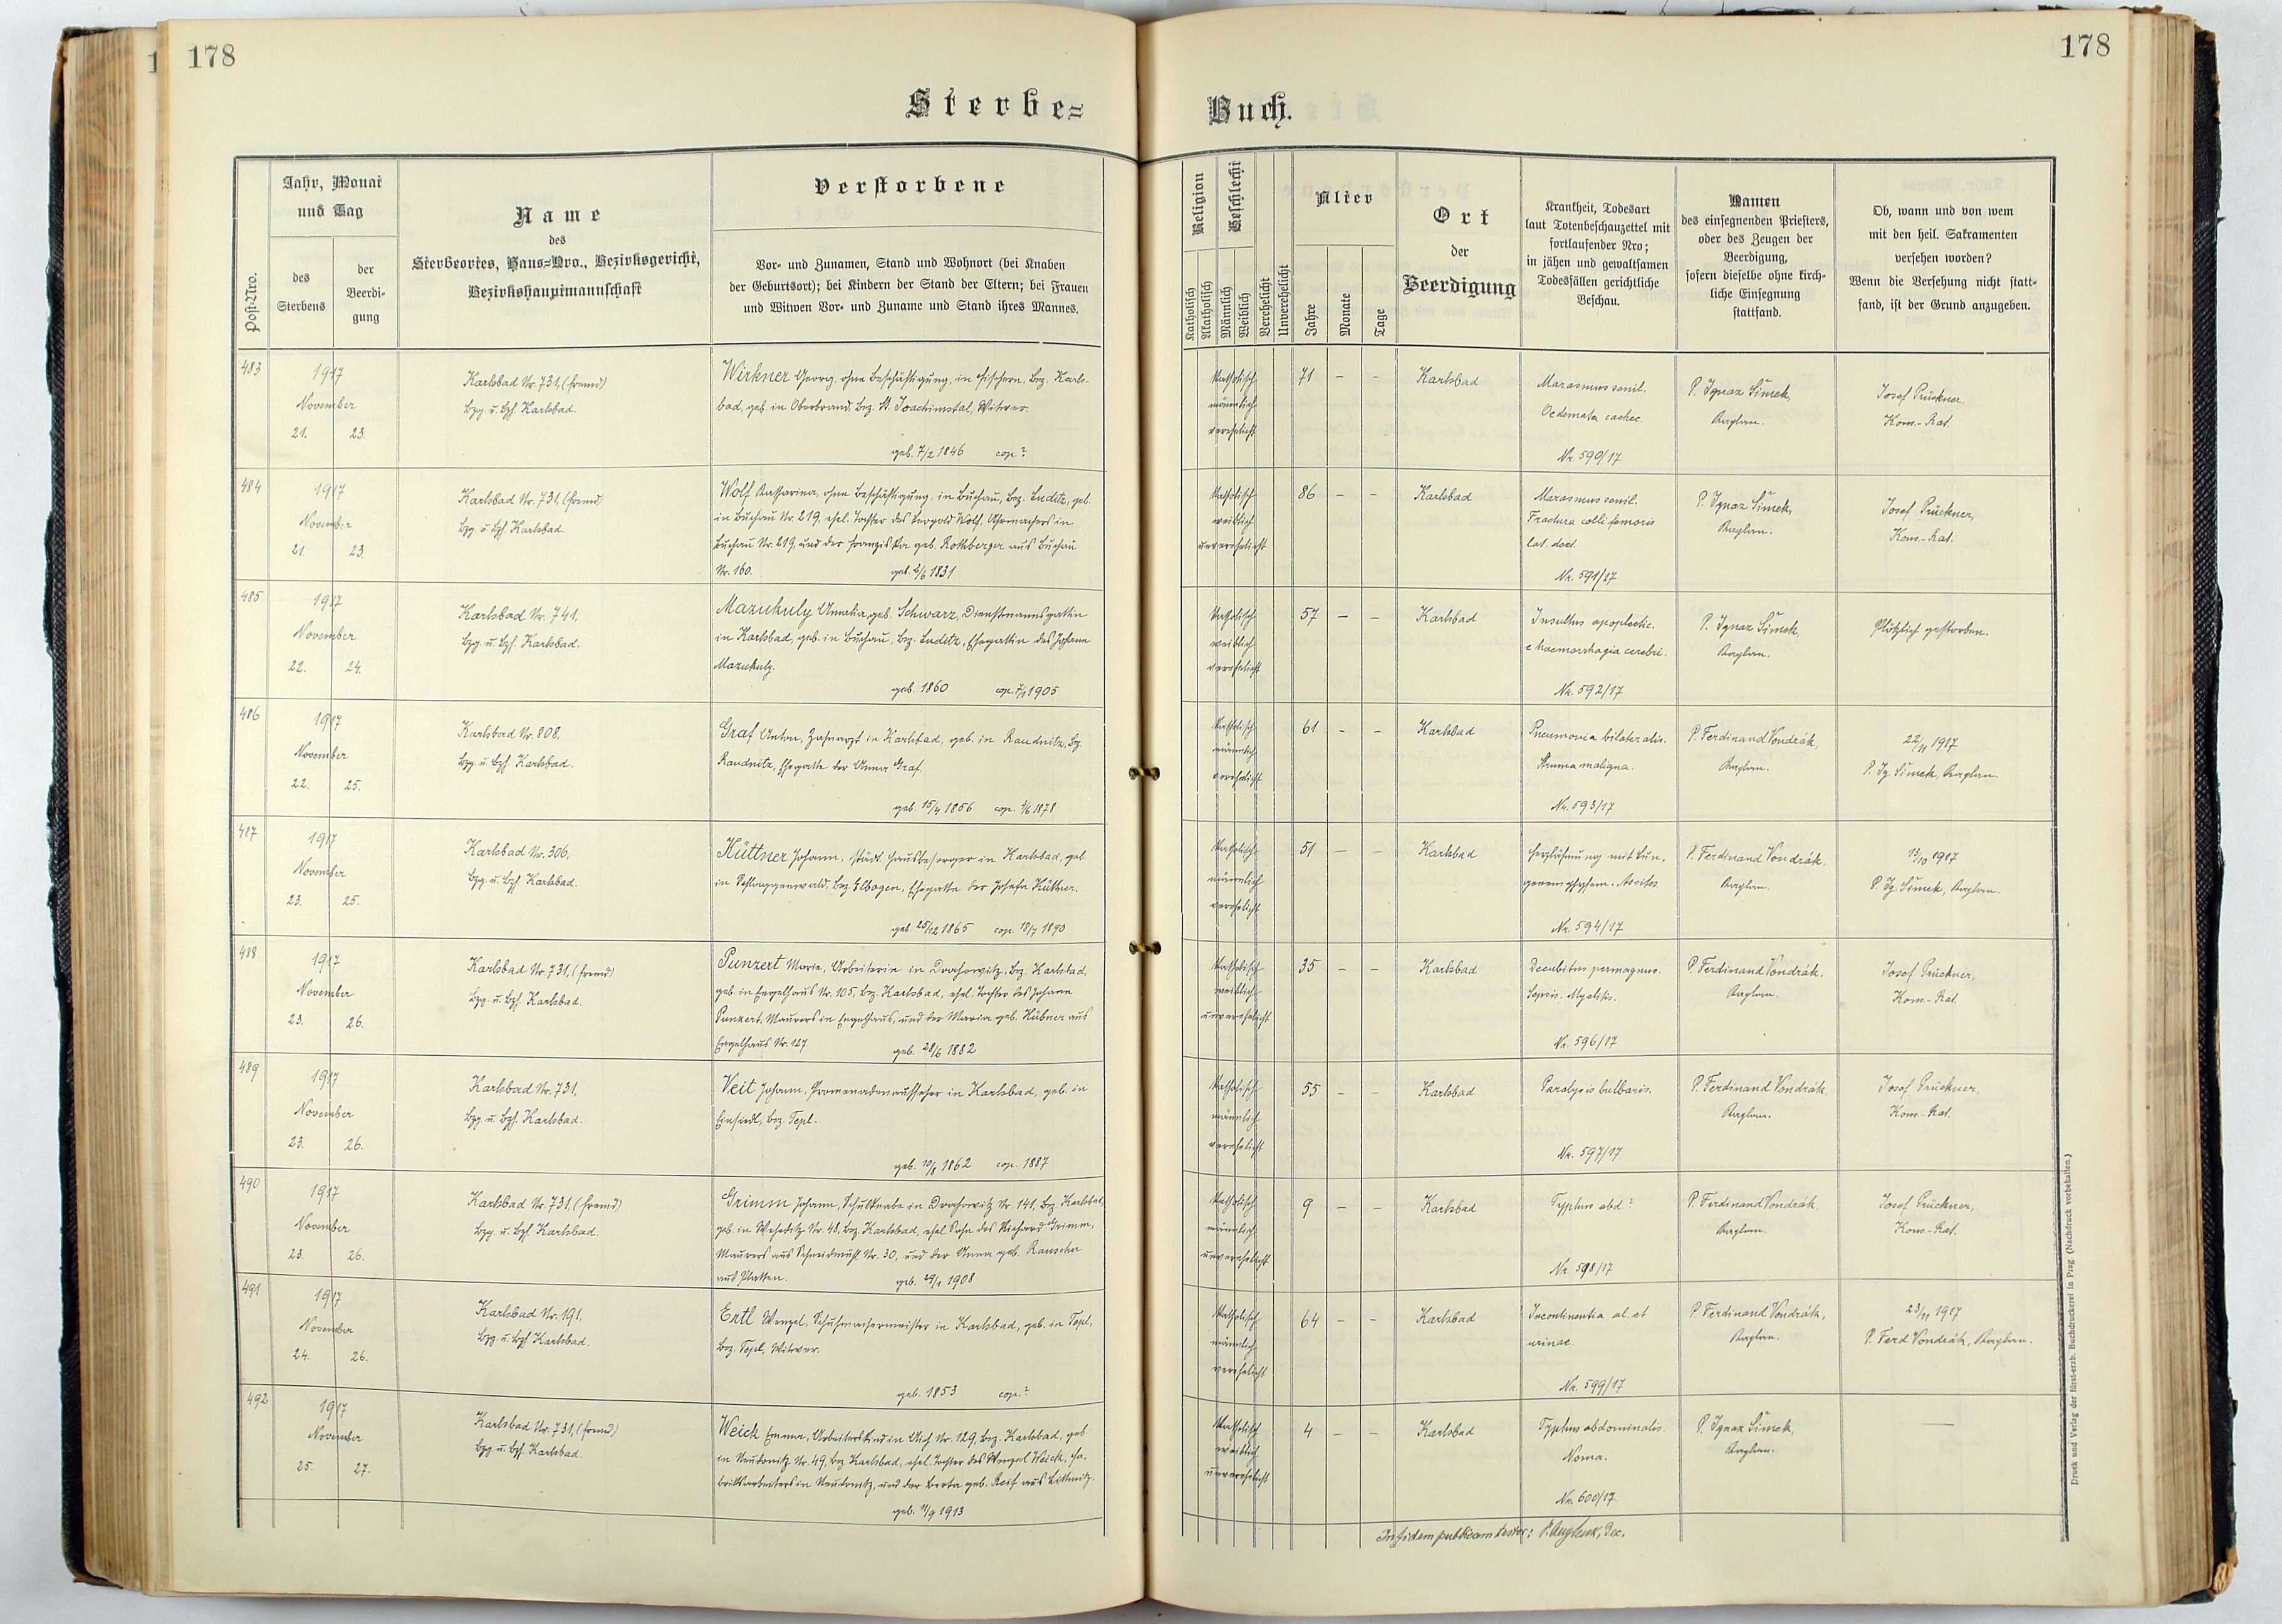 178
178
Sterbe=
Buch.
Post-Nro.
Jahr, Monat
und Tag
des
Sterbens
der
Beerdi-
gung
Name
des
Sterbeortes, Haus=Nro., Bezirksgericht,
Bezirkshauptmannschaft
Verstorbene
Vor- und Zunamen, Stand und Wohnort (bei Knaben
der Geburtsort); bei Kindern der Stand der Eltern; bei Frauen
und Witwen Vor- und Zuname und Stand ihres Mannes.
Religion
Katholisch
Akatholisch
Geschlecht
Männlich
Weiblich
Verehelicht
Unverehelicht
Alter
Jahre
Monate
Tage
Ort
der
Beerdigung
Krankheit, Todesart
laut Totenbeschauzettel mit
fortlaufender Nro;
in jähen und gewaltsamen
Todesfällen gerichtliche
Beschau.
Namen
des einsegnenden Priesters,
oder des Zeugen der
Beerdigung,
sofern dieselbe ohne kirch-
liche Einsegnung
stattfand.
Ob, wann und von wem
mit den heil. Sakramenten
versehen worden?
Wenn die Versehung nicht statt-
fand, ist der Grund anzugeben.
483
1917
November
21. 23.
Karlsbad Nr. 731, (fremd)
Bzg. u. Bzh. Karlsbad.
Wirkner Georg, ohne Beschäftigung, in Fischern, Bez. Karls-
bad, geb. in Oberbrand, Bez. St. Joachimstal, Witwer.
geb. 7/2 1846 cop. ?
Katholisch
männlich
verehelicht
71 - -
Karlsbad
Marasmus senil.
Oedemata cachec.
Nr. 590/17
P. Ignaz Šimek,
Kaplan.
Josef Prückner,
Kons.-Rat.
484
1917
November
21. 23.
Karlsbad Nr. 731, (fremd)
Bzg. u. Bzh. Karlsbad.
Wolf Katharina, ohne Beschäftigung, in Buchau, Bez. Luditz, geb.
in Buchau Nr. 219, ehel. Tochter des Leopold Wolf, Uhrmachers in
Buchau Nr. 219, und der Franziska geb. Rothberger aus Buchau
Nr. 160. geb. 2/6 1831
Katholisch
weiblich
unverehelicht
86 - -
Karlsbad
Marasmus senil.
Fractura colli femoris
lat. dext.
Nr. 591/17
P. Ignaz Šimek,
Kaplan.
Josef Prückner,
Kons.-Rat.
485
1917
November
22. 24.
Karlsbad Nr. 741,
Bzg. u. Bzh. Karlsbad.
Mazuhuly Amalia, geb. Schwarz, Dienstmannsgattin
in Karlsbad, geb. in Buchau, Bez. Luditz, Ehegattin des Johann
Mazuhuly.
geb. 1860 cop. 1905
Katholisch
weiblich
verehelicht
57 - -
Karlsbad
Insultus apoplectic.
e haemorrhagia cerebri.
Nr. 592/17
P. Ignaz Šimek,
Kaplan.
Plötzlich gestorben.
486
1917
November
22. 25.
Karlsbad Nr. 808,
Bzg. u. Bzh. Karlsbad.
Graf Anton, Zahnarzt in Karlsbad, geb. in Raudnitz, Bez.
Raudnitz, Ehegatte der Anna Graf.
geb. 15/4 1856 cop. 1/6 1878
Katholisch
männlich
verehelicht
61 - -
Karlsbad
Pneumonia bilateralis.
Struma maligna.
Nr. 593/17
P. Ferdinand Vondrák,
Kaplan.
22/11 1917
P. Ig. Šimek, Kaplan.
487
1917
November
23. 25.
Karlsbad Nr. 306,
Bzg. u. Bzh. Karlsbad.
Hüttner Johann, städt. Hausbesorger in Karlsbad, geb.
in Schlaggenwald, Bez. Elbogen, Ehegatte der Josefa Hüttner.
geb. 25/12 1865 cop. 18/7 1890
Katholisch
männlich
verehelicht
51 - -
Karlsbad
Herzlähmung mit Lun-
genemphysem. Ascites
Nr. 594/17
P. Ferdinand Vondrák,
Kaplan.
13/10 1917
P. Ig. Šimek, Kaplan.
488
1917
November
23. 26.
Karlsbad Nr. 731, (fremd)
Bzg. u. Bzh. Karlsbad.
Punzert Maria, Arbeiterin in Drahowitz, Bez. Karlsbad,
geb. in Engelhaus Nr. 105, Bez. Karlsbad, ehel. Tochter des Johann
Punzert, Maurers in Engelhaus, und der Maria geb. Hübner aus
Engelhaus Nr. 127. geb. 28/6 1882
Katholisch
weiblich
unverehelicht
35 - -
Karlsbad
Decubitus permagnus.
Sepsis. Myelitis.
Nr. 596/17
P. Ferdinand Vondrák,
Kaplan.
Josef Prückner,
Kons.-Rat.
489
1917
November
23. 26.
Karlsbad Nr. 731,
Bzg. u. Bzh. Karlsbad.
Veit Johann, Promenadenaufseher in Karlsbad, geb. in
Einsiedl, Bez. Tepl.
geb. 10/8 1862 cop. 1887
Katholisch
männlich
verehelicht
55 - -
Karlsbad
Paralysis bulbaris.
Nr. 597/17
P. Ferdinand Vondrák,
Kaplan.
Josef Prückner,
Kons.-Rat.
490
1917
November
23. 26.
Karlsbad Nr. 731, (fremd)
Bzg. u. Bzh. Karlsbad.
Grimm Johann, Schulknabe in Drahowitz Nr. 141, Bez. Karlsbad,
geb. in Weheditz Nr. 48, Bez. Karlsbad, ehel. Sohn des Richard Grimm,
Maurers aus Schneidmühl Nr. 30, und der Anna geb. Rauscher
aus Platten. geb. 29/1 1908
Katholisch
männlich
unverehelicht
9 - -
Karlsbad
Typhus abd. ?
Nr. 598/17
P. Ferdinand Vondrák,
Kaplan.
Josef Prückner,
Kons.-Rat.
491
1917
November
24. 26.
Karlsbad Nr. 191,
Bzg. u. Bzh. Karlsbad.
Ertl Wenzel, Schuhmachermeister in Karlsbad, geb. in Tepl,
Bez. Tepl, Witwer.
geb. 1853 cop. ?
Katholisch
männlich
verehelicht
64 - -
Karlsbad
Incontinentia al. et
urinae.
Nr. 599/17
P. Ferdinand Vondrák,
Kaplan.
23/11 1917
P. Ferd Vondrák, Kaplan.
492
1917
November
25. 27.
Karlsbad Nr. 731, (fremd)
Bzg. u. Bzh. Karlsbad.
Weich Emma, Arbeiterskind in Aich Nr. 129, Bez. Karlsbad, geb.
in Neudonitz Nr. 49, Bez. Karlsbad, ehel. Tochter des Wenzel Weich, Fa-
briksarbeiters in Neudonitz, und der Berta geb. Reif aus Littmitz.
geb. 11/9 1913
Katholisch
weiblich
unverehelicht
4 - -
Karlsbad
Typhus abdominalis.
Noma.
Nr. 600/17.
P. Ignaz Šimek,
Kaplan.
—
In fidem publicam testor: Dec.
Druck und Verlag der fürst-erzb. Buchdruckerei in Prag (Nachdruck vorbehalten.)